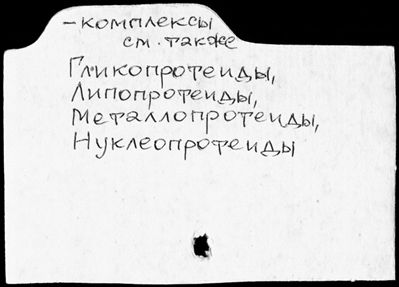 -комплексы
см. также
Гликопротеиды,
Липопротеиды,
Металлопротеиды,
Нуклеопротеиды